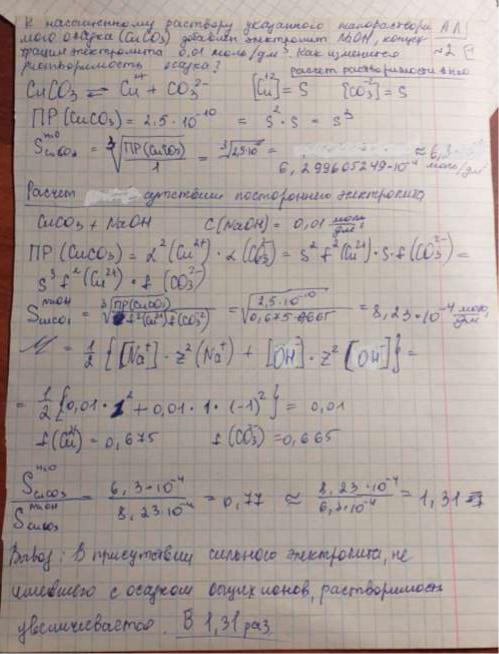 К насыщенному раствору указанного малораствори
мого осадка (CuCO₃) добавлен электролит NaOH, концен
трация электролита 0,01 моль/дм³. Как изменится ~2
растворимость осадка?
расчет растворимости в H₂O
CuCO₃ ⇌ Cu²⁺ + CO₃²⁻ [Cu⁺²] = S [CO₃²⁻] = S
ПР (CuCO₃) = 2.5 · 10⁻¹⁰ = S² · S = S³
S CuCO₃ H₂O = ∛(ПР(CuCO₃)/1) = ∛2,5·10⁻ = 6,299605249·10⁻⁴ ≈ 6,3·10⁻⁴ моль/дм³
Расчет присутствии постороннего электролита
CuCO₃ + NaOH C(NaOH) = 0,01 моль/дм³
ПР (CuCO₃) = α²(Cu²⁺) · α(CO₃²⁻) = S² f²(Cu²⁺) · S · f(CO₃²⁻) =
S³ f²(Cu²⁺) · f (CO₃²⁻)
S CuCO₃ NaOH = ∛(ПР(CuCO₃)/f²(Cu²⁺)f(CO₃²⁻)) = √(2,5·10⁻¹⁰/0,675·0,665) = 8,23·10⁻⁴ моль/дм
M = 1/2 {[Na⁺] · z²(Na⁺) + [OH] · z² [OH]} =
= 1/2 {0,01 · 1² + 0,01 · 1 · (-1)²} = 0,01
f(Cu²⁺) = 0,675 f(CO₃²⁻) = 0,665
S CuCO₃ H₂O / S CuCO₃ NaOH = 6,3·10⁻⁴ / 8,23·10⁻⁴ = 0,77 ≈ 8,23·10⁻⁴ / 6,3·10⁻⁴ = 1,31
Вывод: В присутствии сильного электролита, не
имевшего с осадком общих ионов, растворимость
увеличивается. В 1,31 раз.